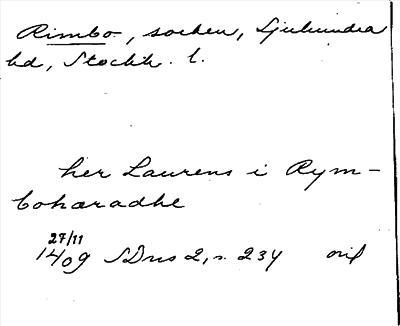 Rimbo, socken, Sjuhundra
hd, Stockh. l.
her Laurens i Rym-
boharadhe
27/11
1409 SDns 2, s. 234 orig